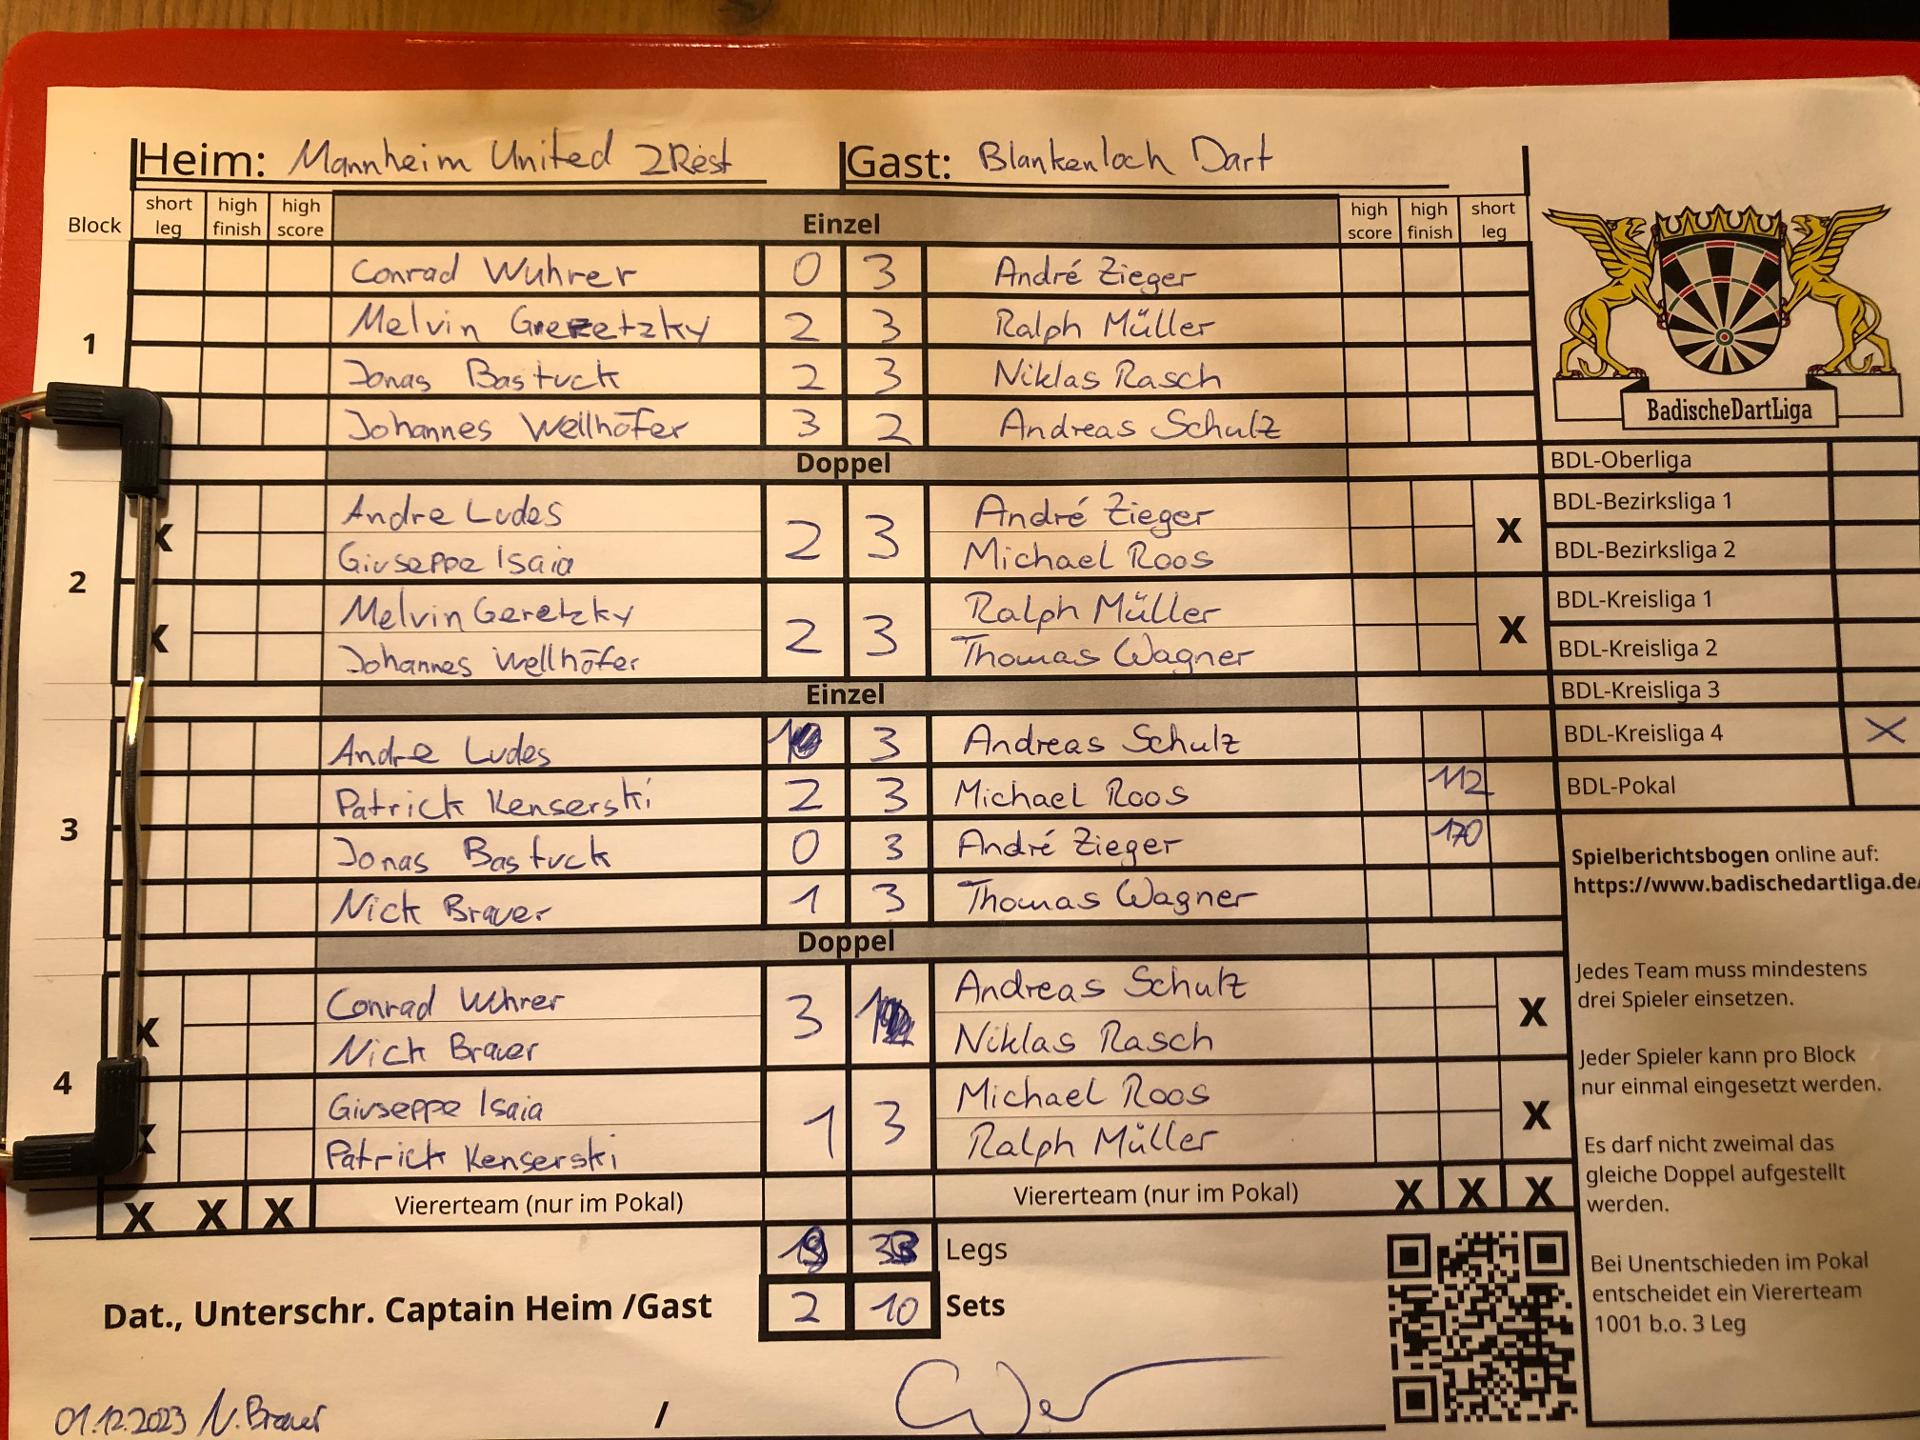 Heim: Mannheim United 2Rest Gast: Blankenloch Dart
Block short leg high finish high score Einzel high score high finish short leg
Conrad Wuhrer 0 3 André Zieger
1 Melvin Gerezetzky 2 3 Ralph Müller
Jonas Bastuck 2 3 Niklas Rasch
Johannes Wellhöfer 3 2 Andreas Schulz
BadischeDartLiga
Doppel
BDL-Oberliga
BDL-Bezirksliga 1
BDL-Bezirksliga 2
BDL-Kreisliga 1
BDL-Kreisliga 2
BDL-Kreisliga 3
BDL-Kreisliga 4 X
BDL-Pokal
Andre Ludes André Zieger
X 2 3 X
Giuseppe Isaia Michael Roos
2
Melvin Geretzky Ralph Müller
X 2 3 X
Johannes Wellhöfer Thomas Wagner
Einzel
Andre Ludes 1 3 Andreas Schulz
Patrick Kenserski 2 3 Michael Roos 112
3 Jonas Bastuck 0 3 André Zieger 170
Nick Brauer 1 3 Thomas Wagner
Doppel
Conrad Whrer Andreas Schulz
X 3 1 X
Nick Brauer Niklas Rasch
4
Giuseppe Isaia Michael Roos
X 1 3 X
Patrick Kenserski Ralph Müller
X X X Viererteam (nur im Pokal) Viererteam (nur im Pokal) X X X
Legs
Dat., Unterschr. Captain Heim /Gast 2 10 Sets
01.12.2023 N. Brauer /
Spielberichtsbogen online auf:
https://www.badischedartliga.de/
Jedes Team muss mindestens
drei Spieler einsetzen.
Jeder Spieler kann pro Block
nur einmal eingesetzt werden.
Es darf nicht zweimal das
gleiche Doppel aufgestellt
werden.
Bei Unentschieden im Pokal
entscheidet ein Viererteam
1001 b.o. 3 Leg